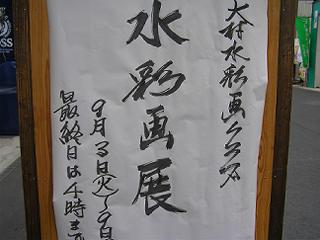 大村水彩画クラブ
水彩画展
9月3日(火)〜9日
最終日は4時まで